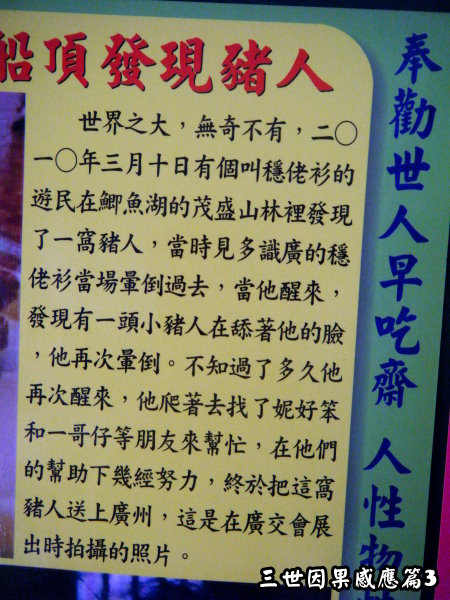 船頂發現豬人
世界之大，無奇不有，二〇
一〇年三月十日有個叫穩佬衫的
遊民在鯽魚湖的茂盛山林裡發現
了一窩豬人，當時見多識廣的穩
佬衫當場暈倒過去，當他醒來，
發現有一頭小豬人在舔著他的臉
，他再次暈倒。不知過了多久他
再次醒來，他爬著去找了妮好笨
和一哥仔等朋友來幫忙，在他們
的幫助下幾經努力，終於把這窩
豬人送上廣州，這是在廣交會展
出時拍攝的照片。
奉勸世人早吃齋 人性物
三世因果感應篇3